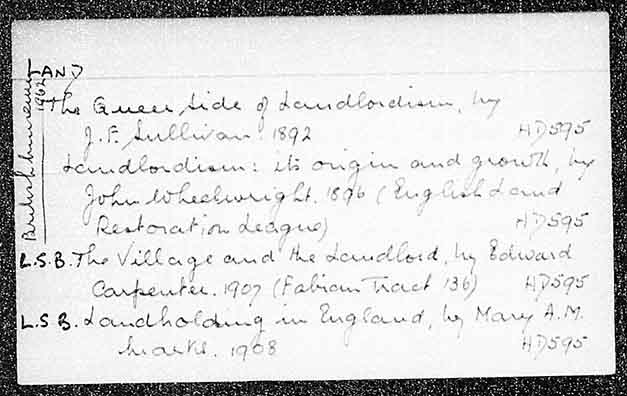 LAND
The Queer Side of Landlordism, by
J. F. Sullivan. 1892 HD595
Landlordism: its origin and growth, by
John Wheelwright. 1896 (English Land
Restoration League) HD595
L.S.B. The Village and the Landlord, by Edward
Carpenter. 1907 (Fabian Tract 136) HD595
L.S.B. Landholding in England, by Mary A. M.
Marks. 1908 HD595
British
1962